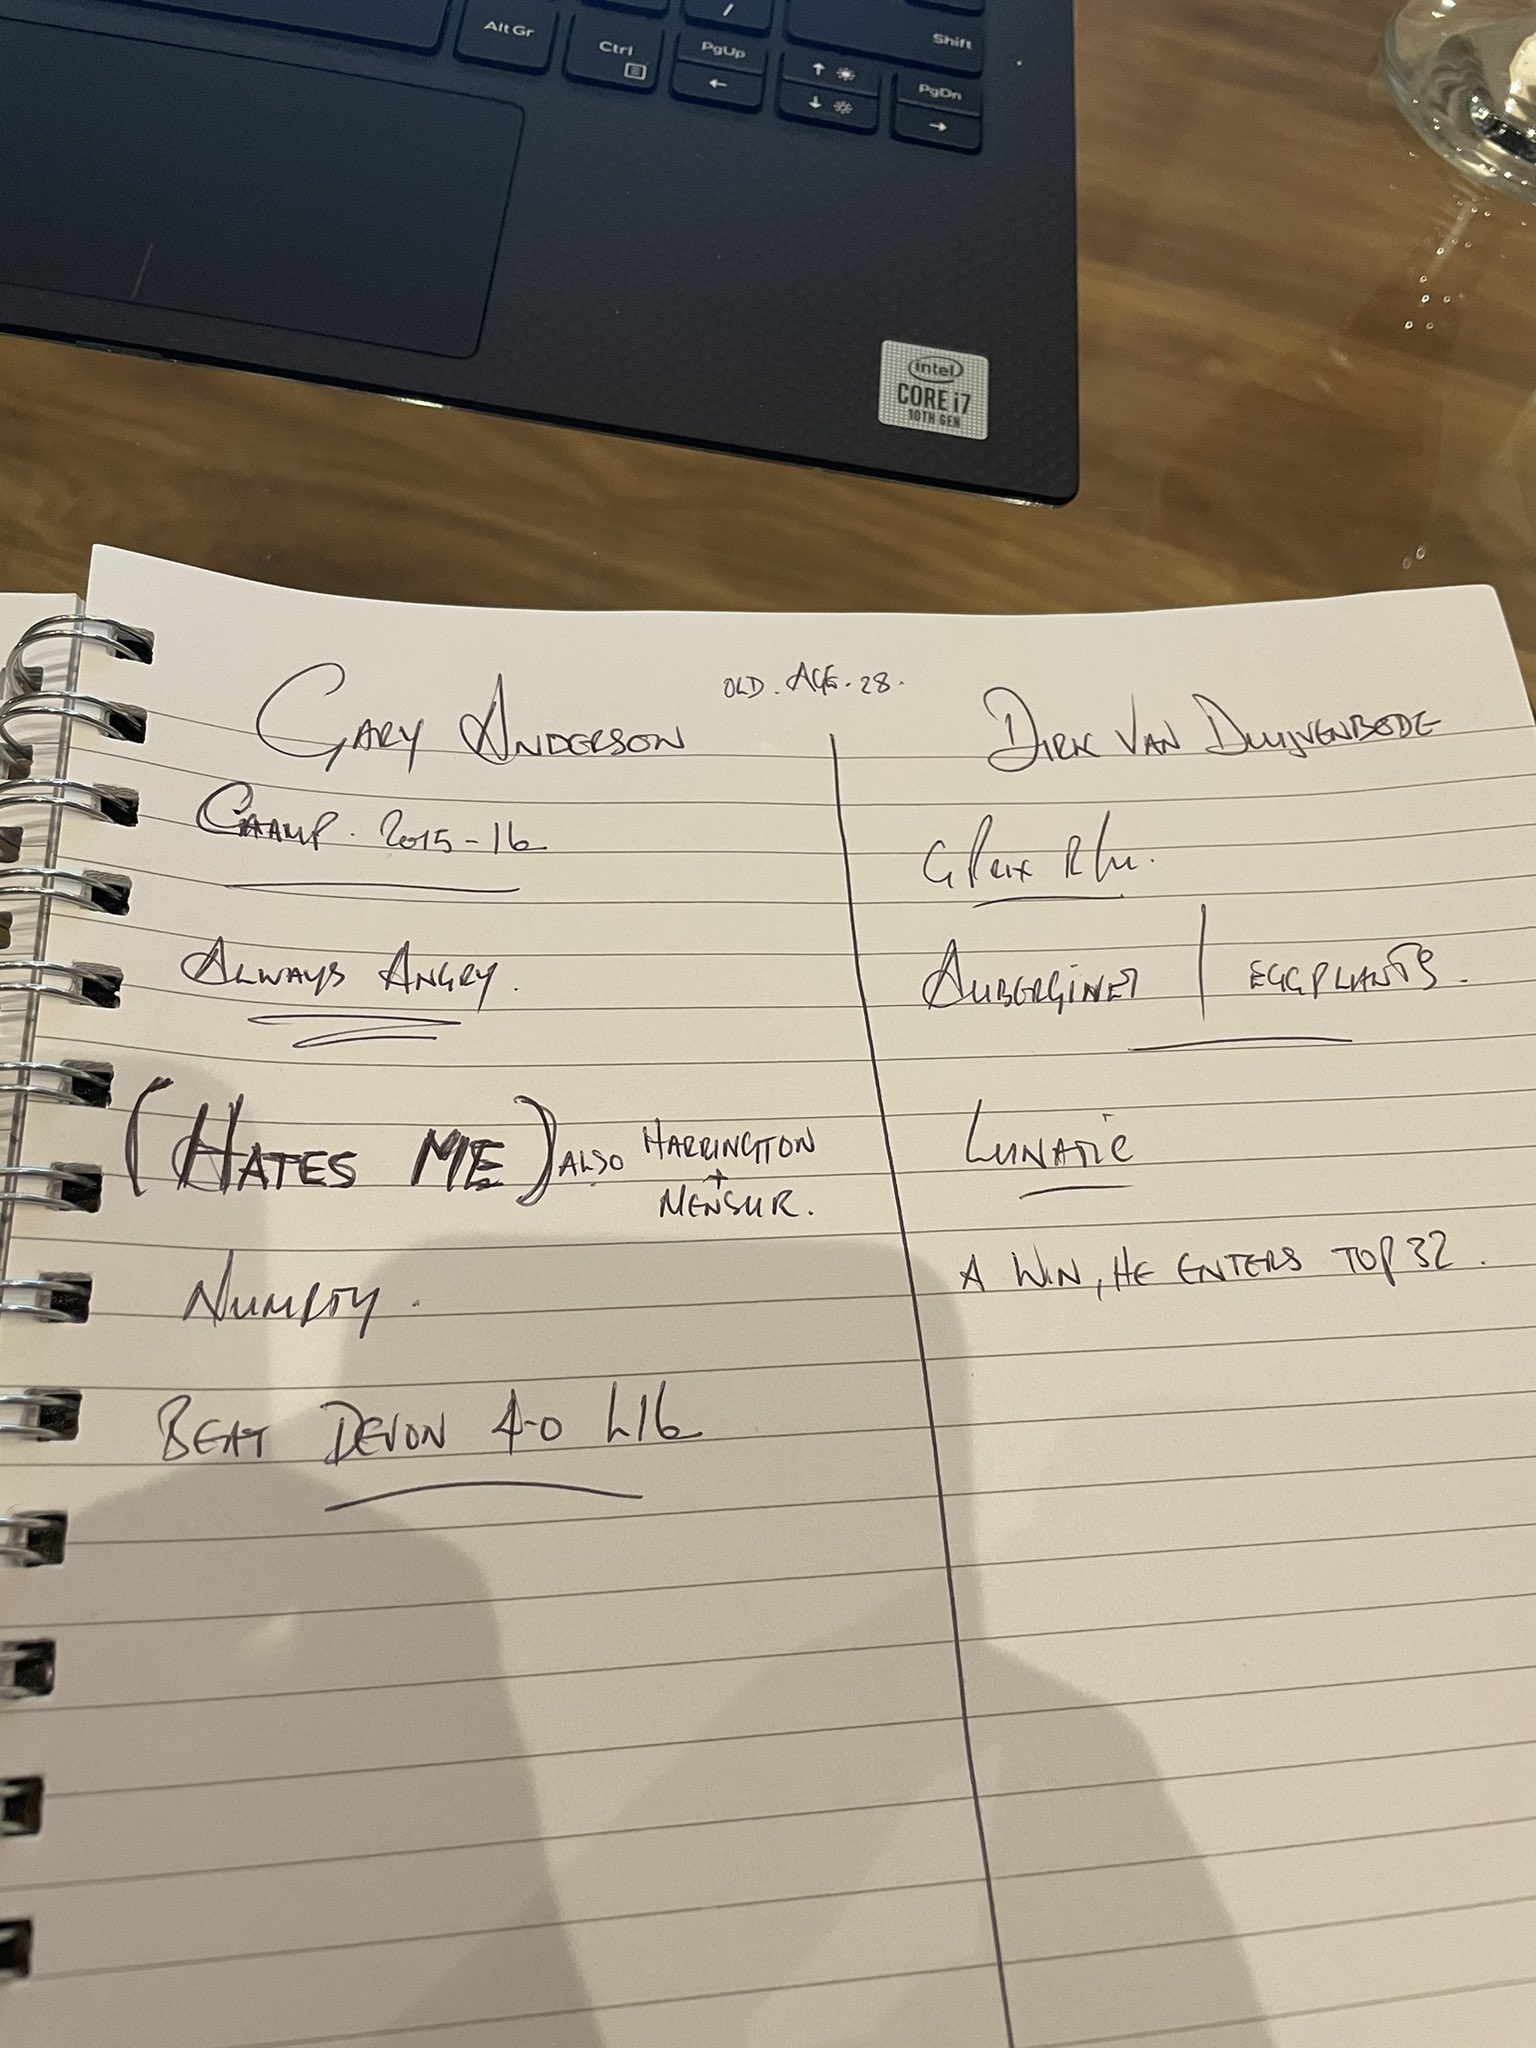 /
Alt Gr
Ctrl
PgUp
Shift
PgDn
intel
CORE i7
10TH GEN
OLD. AGE. 28.
GARY ANDERSON
CHAMP. 2015-16
ALWAYS ANGRY.
(HATES ME) ALSO HARRINGTON
+
MENSUR.
NUMPTY.
BEAT DEVON 4-0 L16
DIRK VAN DUIJVENBODE
G PRIX R/U.
AUBERGINES | EGGPLANTS.
LUNATIC
A WIN, HE ENTERS TOP 32.